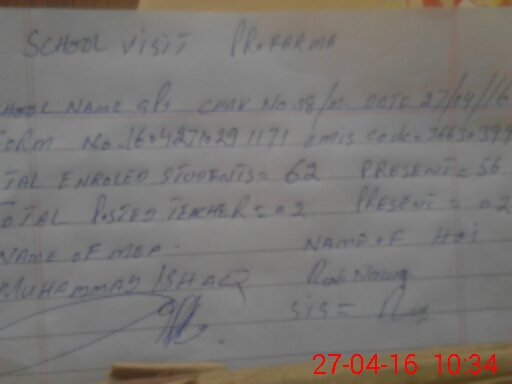 SCHOOL VISIT PROFARMA
HOOL NAME GPS CHAK NO.18/M. DATE 27/04/16
FORM NO.16042710291171 EMIS CODE=
TAL ENROLED STUDENTS= 62 PRESENT= 56
TOTAL POSTED TEACHER=02 PRESENT=02
NAME OF MEA. NAME OF HOI
MUHAMMAD ISHAQ
SIS=
27-04-16 10:34